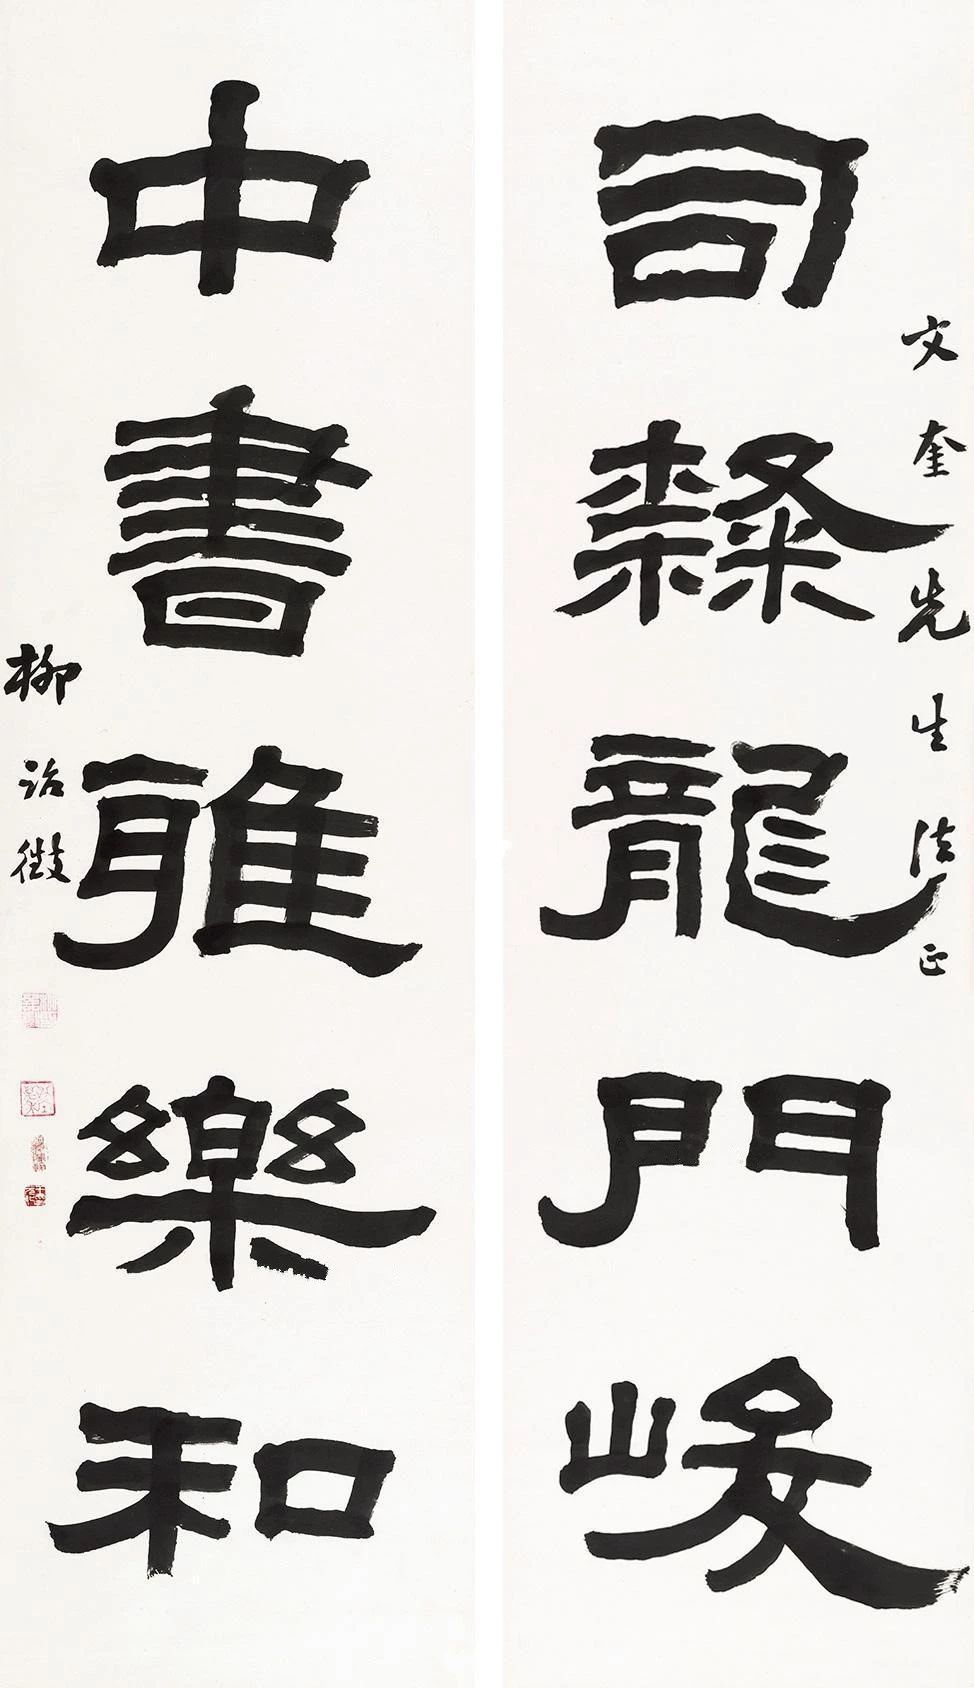 文奎先生法正
司隸龍門峻
中書雅樂和
柳詒徵